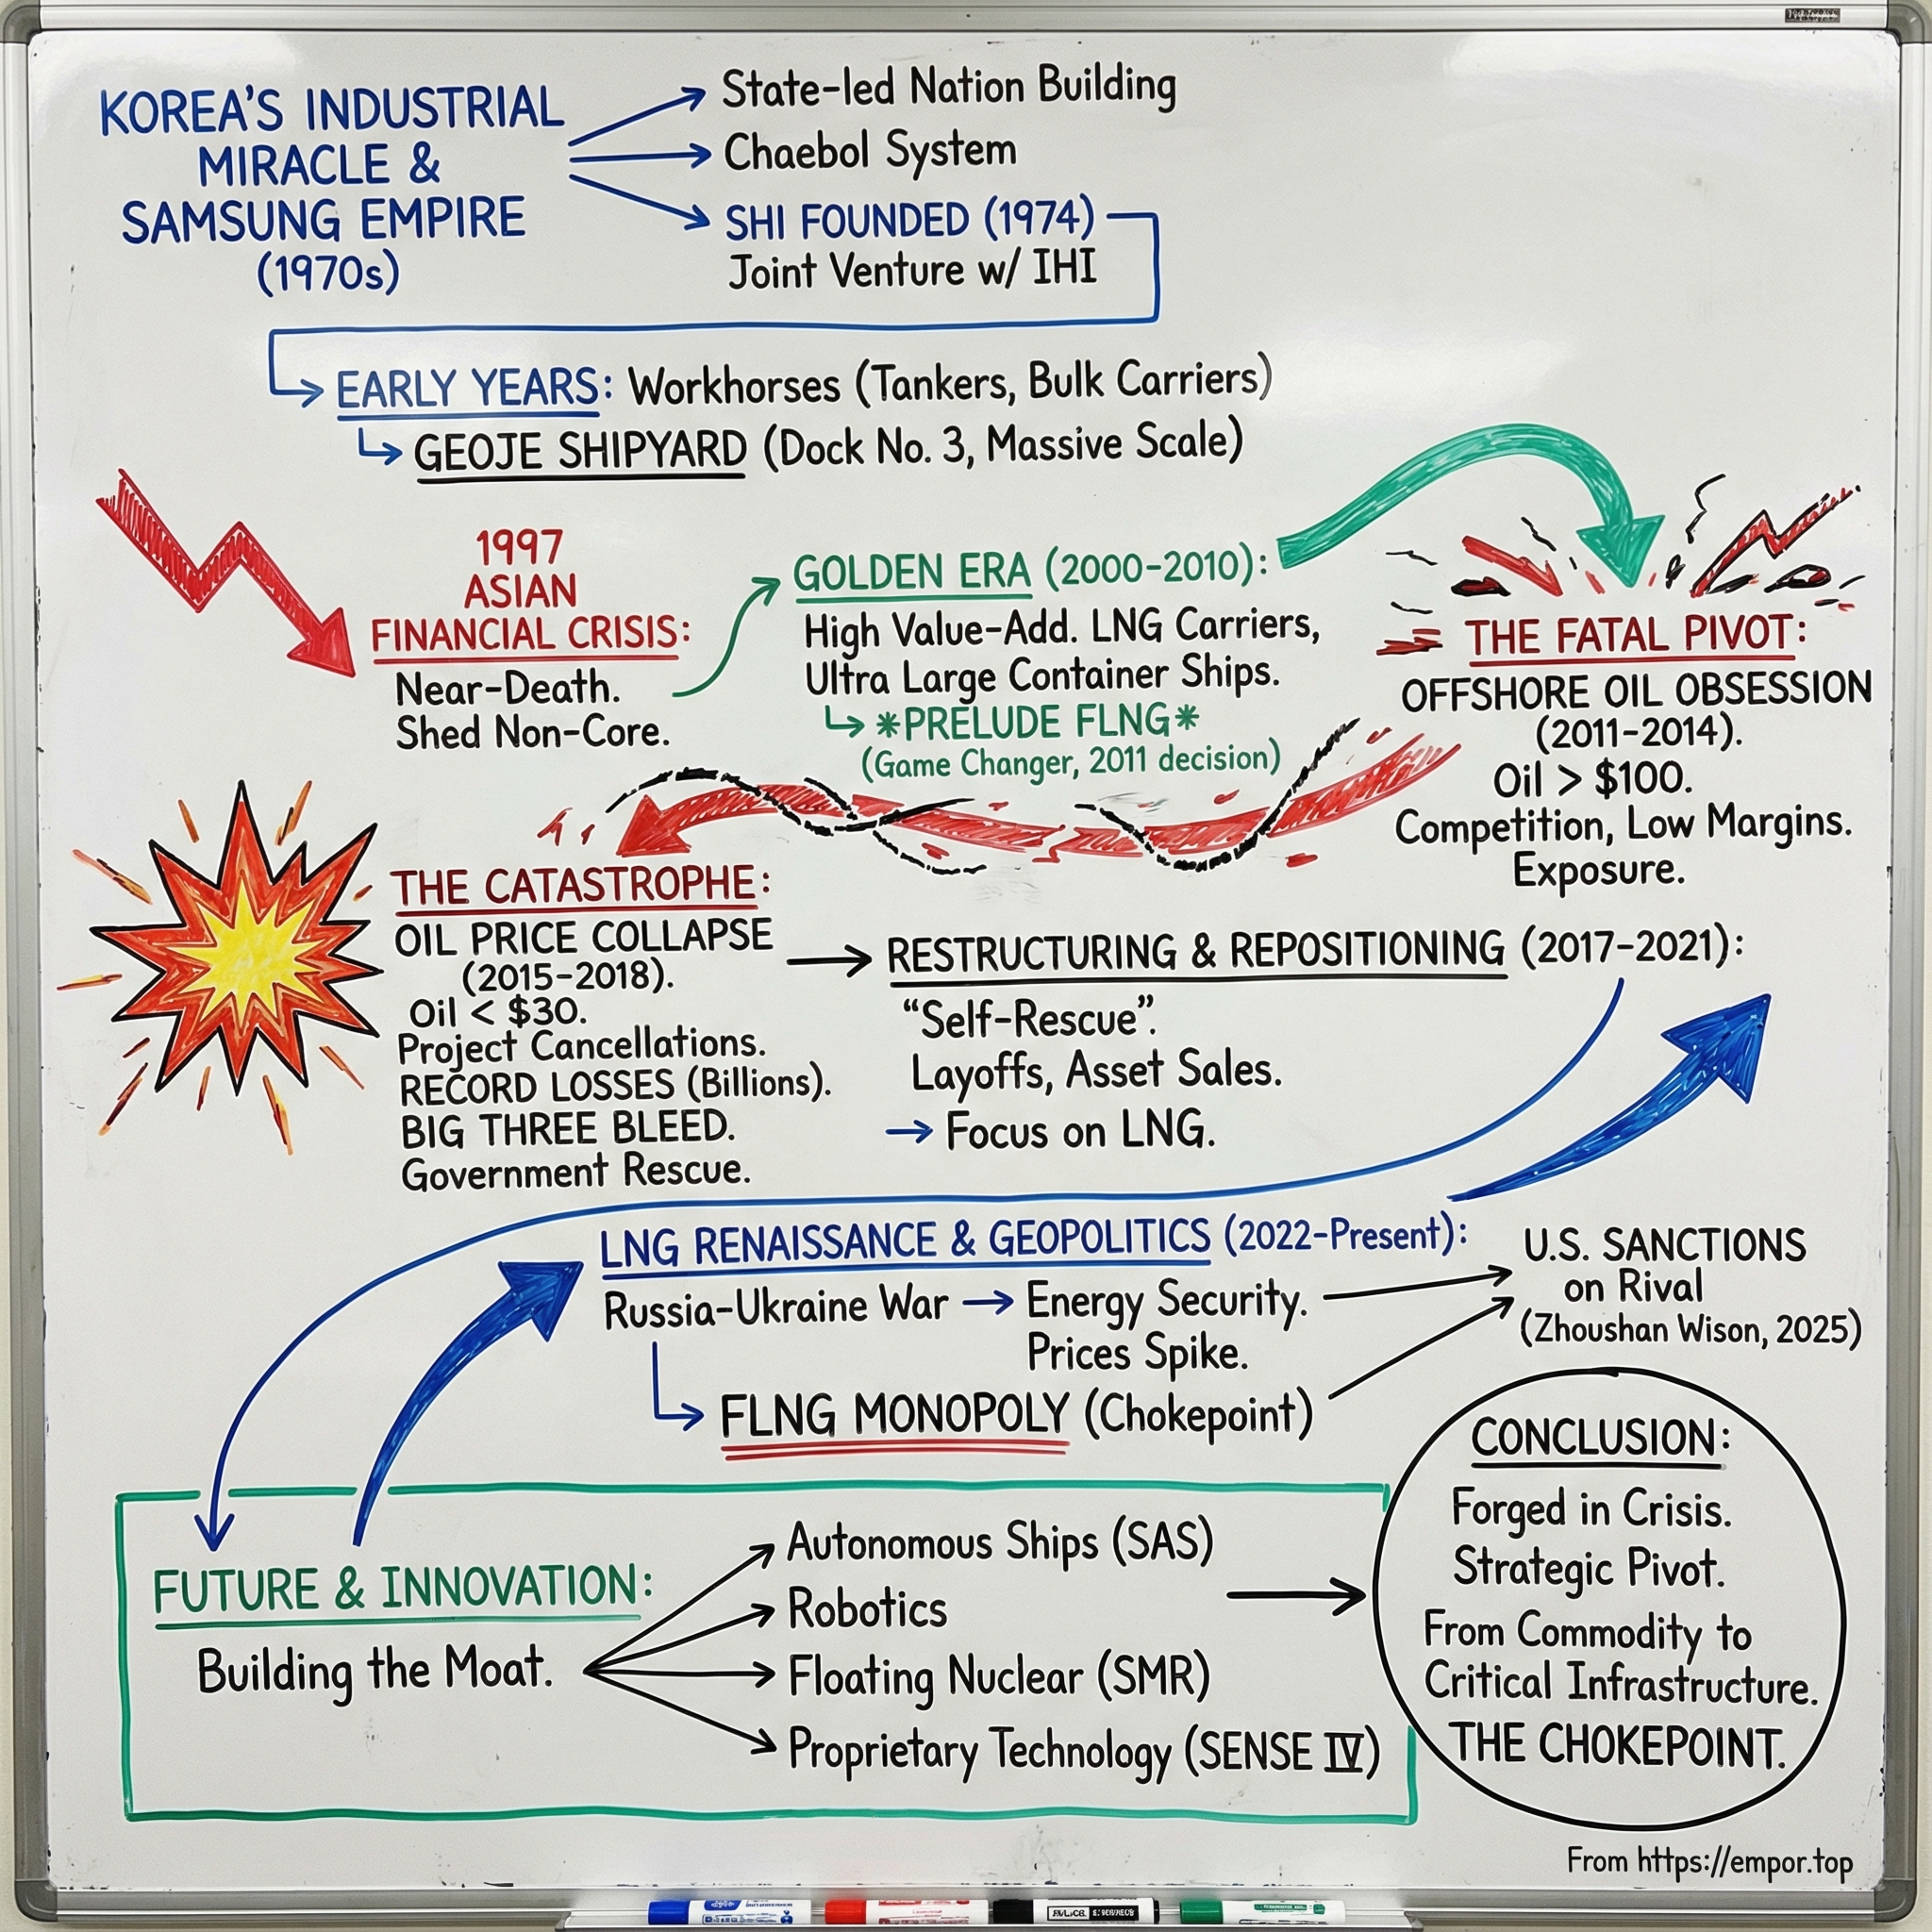 KOREA'S INDUSTRIAL
MIRACLE &
SAMSUNG EMPIRE
(1970s)
State-led Nation Building
Chaebol System
SHI FOUNDED (1974)
Joint Venture w/ IHI
EARLY YEARS: Workhorses (Tankers, Bulk Carriers)
GEOJE SHIPYARD (Dock No. 3, Massive Scale)
1997
ASIAN
FINANCIAL CRISIS:
Near-Death.
Shed Non-Core.
GOLDEN ERA (2000-2010):
High Value-Add. LNG Carriers,
Ultra Large Container Ships.
*PRELUDE FLNG*
(Game Changer, 2011 decision)
THE FATAL PIVOT:
OFFSHORE OIL OBSESSION
(2011-2014).
Oil > $100.
Competition, Low Margins.
Exposure.
THE CATASTROPHE:
OIL PRICE COLLAPSE
(2015-2018).
Oil < $30.
Project Cancellations.
RECORD LOSSES (Billions).
BIG THREE BLEED.
Government Rescue.
RESTRUCTURING & REPOSITIONING (2017-2021):
"Self-Rescue".
Layoffs, Asset Sales.
→ Focus on LNG.
LNG RENAISSANCE & GEOPOLITICS (2022-Present):
Russia-Ukraine War → Energy Security.
Prices Spike.
FLNG MONOPOLY (Chokepoint)
U.S. SANCTIONS
on Rival
(Zhoushan Wison, 2025)
FUTURE & INNOVATION:
Building the Moat.
Autonomous Ships (SAS)
Robotics
Floating Nuclear (SMR)
Proprietary Technology (SENSE IV)
CONCLUSION:
Forged in Crisis.
Strategic Pivot.
From Commodity to
Critical Infrastructure.
THE CHOKEPOINT.
From https://empor.top